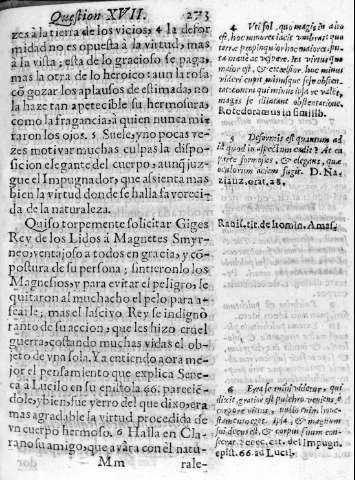 Question XVII. 273
zes à la tierra de los vicios, 4 la defor
midad no es opuesta à la virtud, mas
à la vista; esta de lo gracioso se paga,
mas la otra de lo heroico: aun la rosa
cõ gozar los aplausos de estimada, no
la haze tan apetecible su hermosura,
como la fragancia, à quien nunca mi
raron los ojos. 5 Suele, y no pocas ve-
zes motivar muchas culpas la dispo-
sicion elegante del cuerpo, aunq̃ juz-
gue el Impugnador, que assienta mas
bien la virtud donde se halla favoreci-
da de la naturaleza.
Quiso torpemente solicitar Giges
Rey de los Lidos à Magnetes Smyr-
neo, ventajoso a todos en gracia, y cõ-
postura de su persona; sintieronlo los
Magnesios, y para evitar el peligro, le
quitaron al muchacho el pelo para a-
fearle; mas el lascivo Rey se indignò
tanto de su accion, que les hizo cruel
guerra, costando muchas vidas el ob-
jeto de vna sola. Y a entiendo aora me-
jor el pensamiento que explica Sene-
ca à Lucilo en su epistola 66. pareciè-
dole, y bien, fue yerro del que dixo, era
mas agradable la virtud procedida de
vn cuerpo hermoso. 6 Halla en Cla-
rano su amigo, que avara con el natu-
Mm rale-
4 Vt sol, quo magis in alto
est, hoc minorem iacit umbram quo
terræ propinquior hoc maiorem,
magis se
Roterodamus in similib.
5 Deformis est quantum ad
id quod in aspectum cadit? At ex
parte formosus, & elegans, quæ
oculorum aciem fugit. D. Na-
zianz. orat. 28.
Ravis. tit. de homin. Amas.
6 Errasse mihi videtur, qui
dixit, gratior est pulchro veniens è
corpore virtus, nullo enim hone-
stamento eget, ipsa & magnum
sui decus est, & corpus suum con-
secrat. Senec. cit. del Impugn.
epist. 66. ad Lucil.